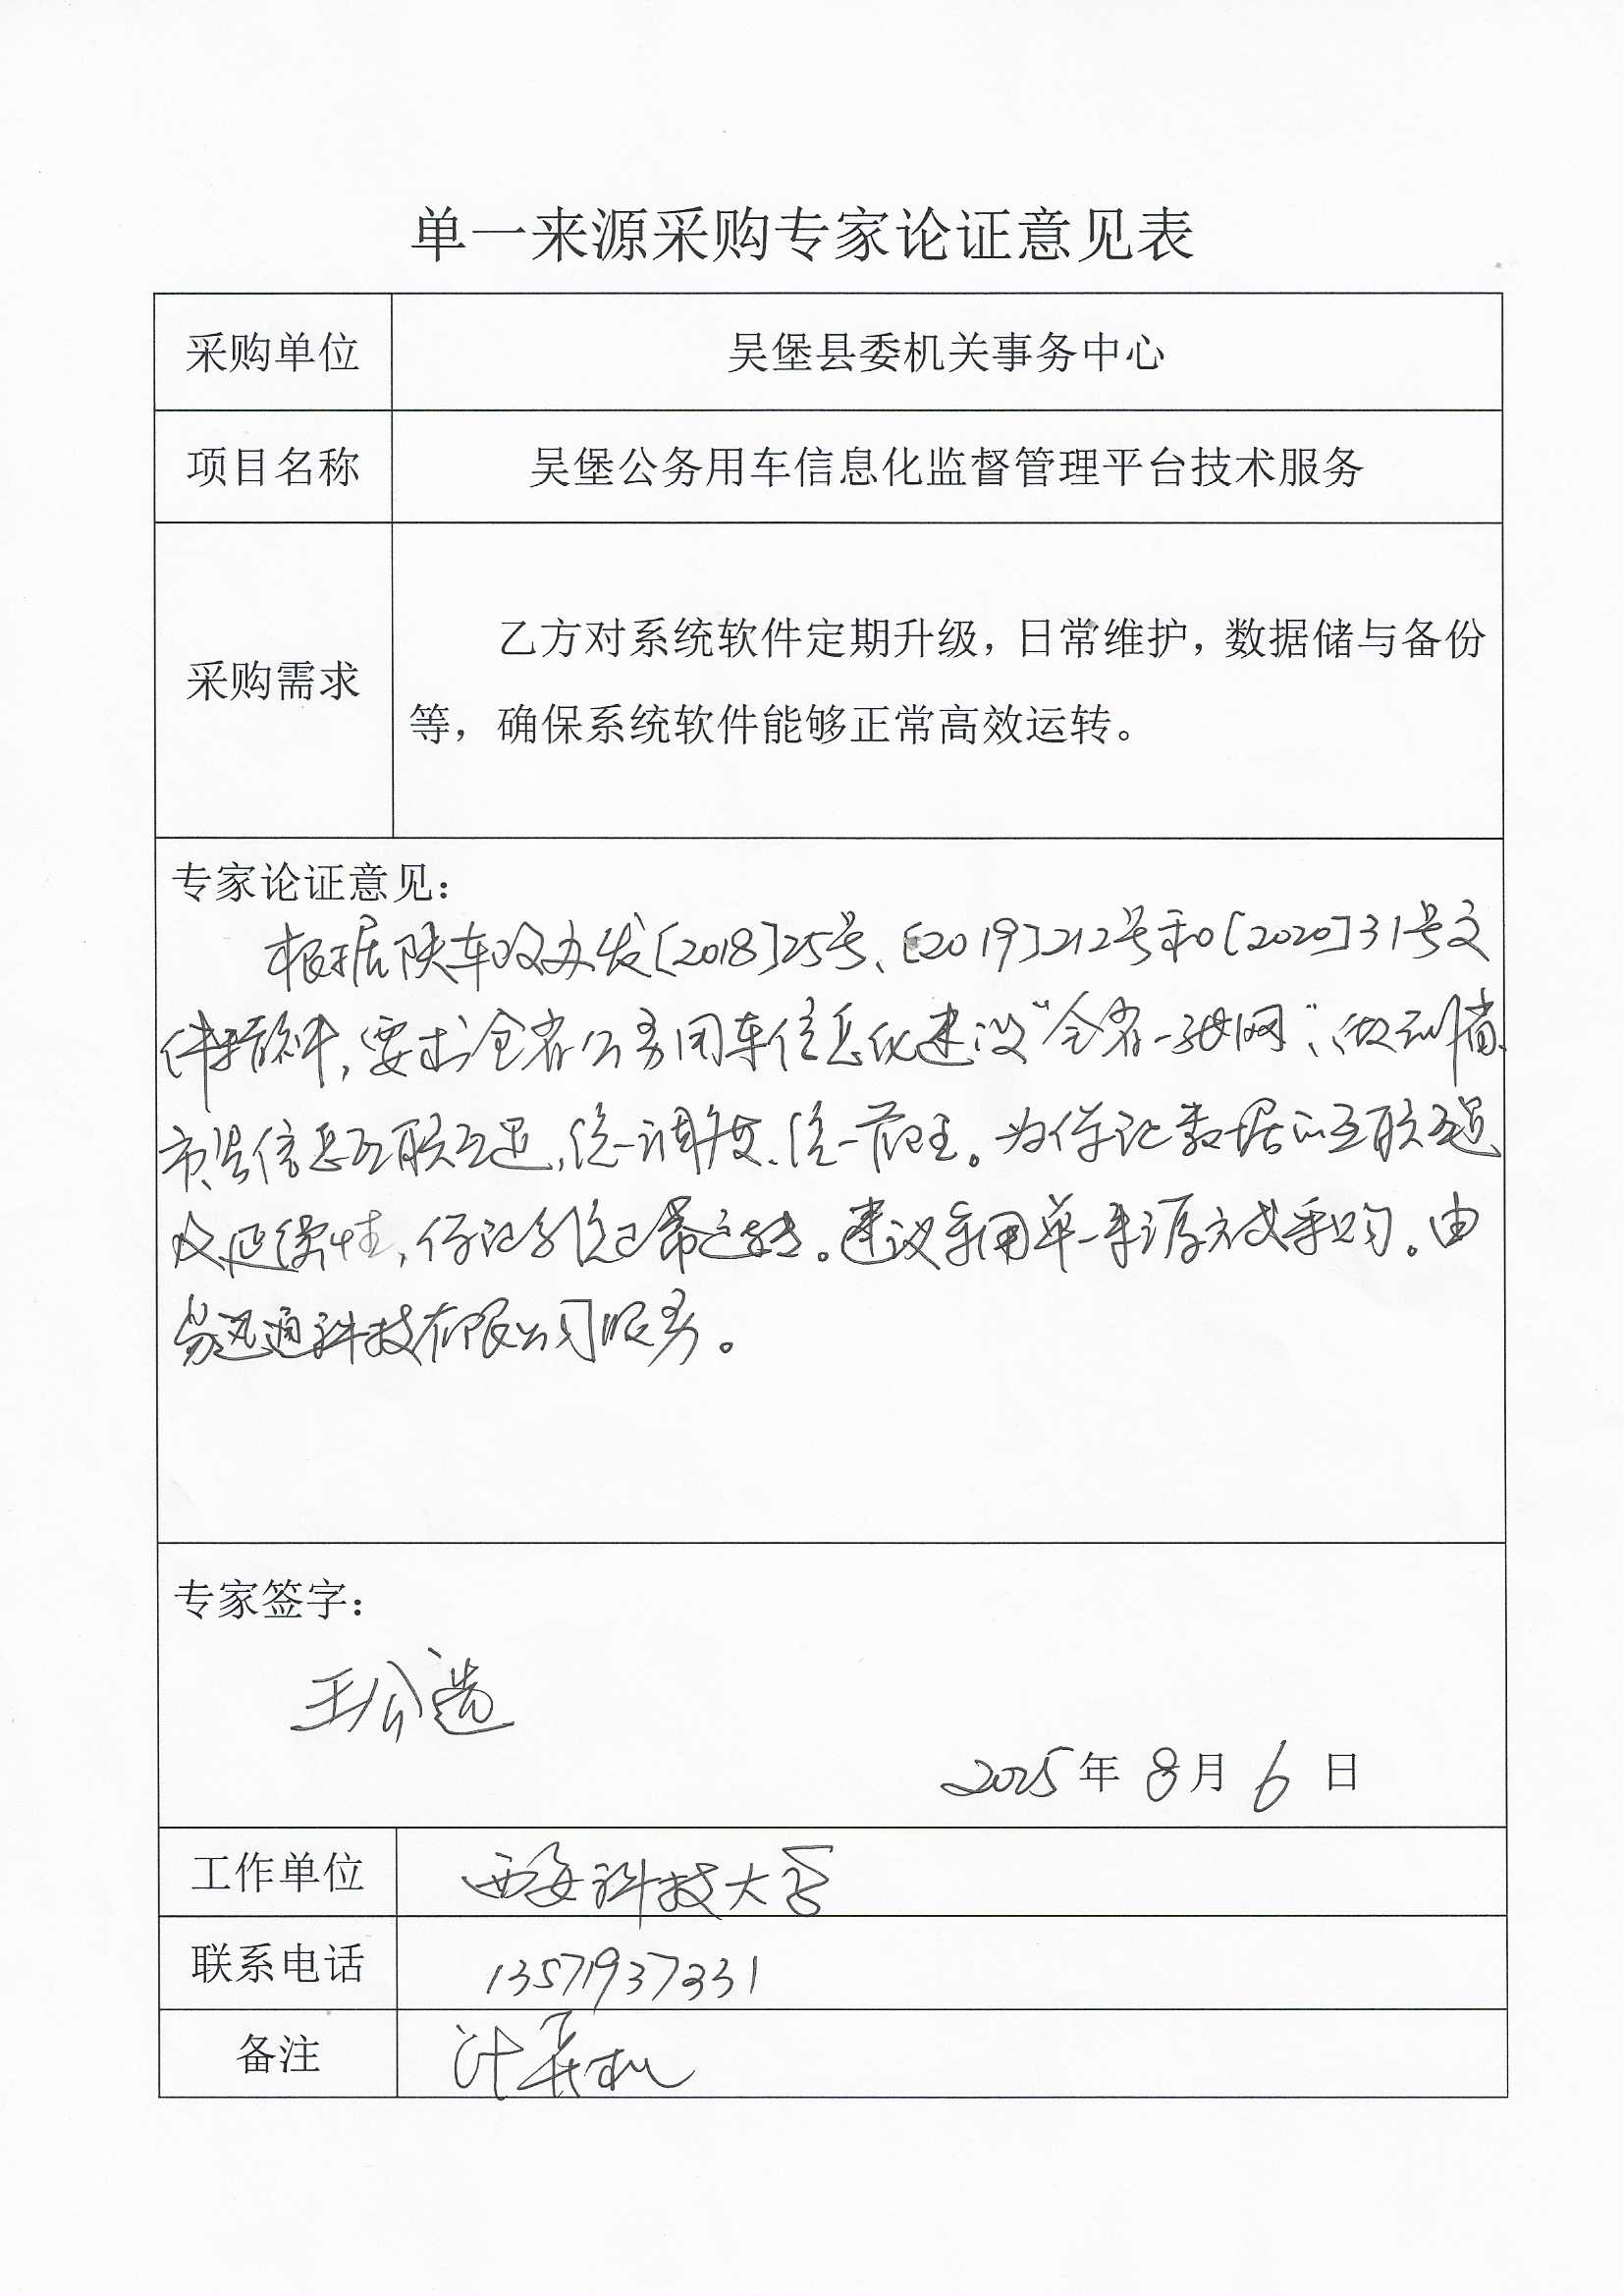 单一来源采购专家论证意见表
采购单位 吴堡县委机关事务中心
项目名称 吴堡公务用车信息化监督管理平台技术服务
采购需求
乙方对系统软件定期升级，日常维护，数据储与备份
等，确保系统软件能够正常高效运转。
专家论证意见：
根据陕车改办发[2018]25号、[2019]212号和[2020]31号文
件精神，要求全省公务用车信息化建设“全省一张网”，做到省、
市、县信息互联互通，统一调度、统一管理。为保证数据的互联互通
及延续性，保证系统正常运转。建议采用单一来源方式采购。由
易迅通科技有限公司服务。
专家签字：
王公造
2025年8月6日
工作单位 西安科技大学
联系电话 13571937331
备注 计算机